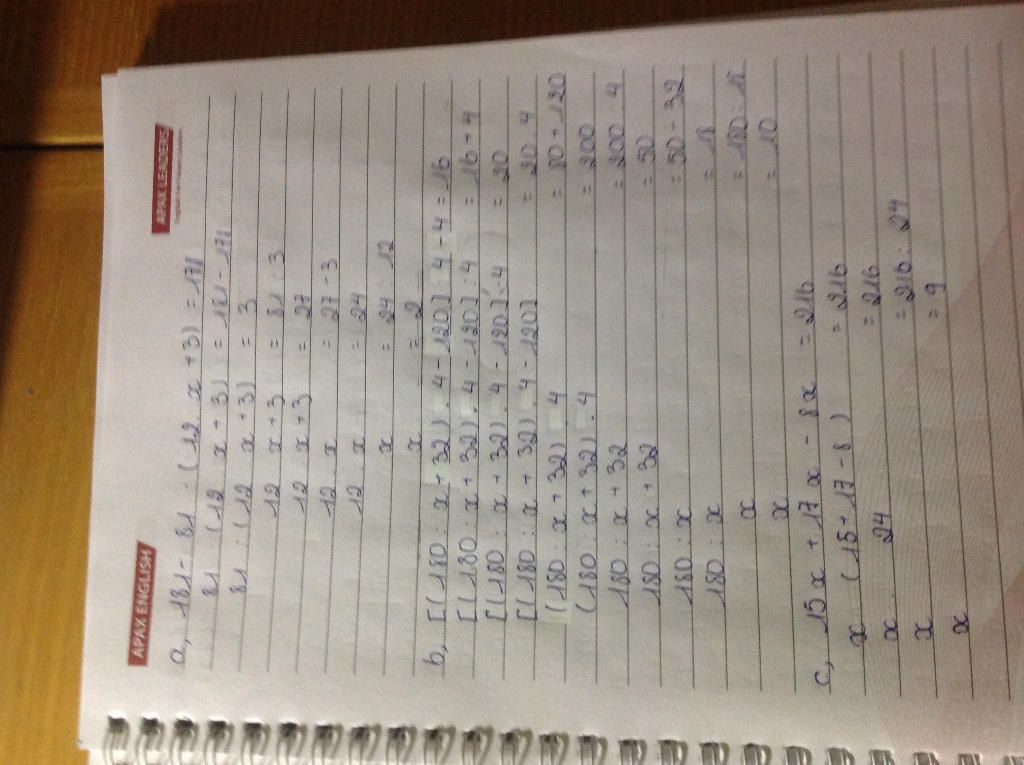 APAX ENGLISH APAX LEADERS
a, 181 - 81 : (12 . x + 3) = 178
81 : (12 . x + 3) = 181 - 178
81 : (12 . x + 3) = 3
12 . x + 3 = 81 : 3
12 . x + 3 = 27
12 . x = 27 - 3
12 . x = 24
x = 24 : 12
x = 2
b, [(180 : x + 32) . 4 - 120] : 4 - 4 = 16
[(180 : x + 32) . 4 - 120] : 4 = 16 + 4
[(180 : x + 32) . 4 - 120] : 4 = 20
[(180 : x + 32) . 4 - 120] = 20 . 4
(180 : x + 32) . 4 = 80 + 120
(180 : x + 32) . 4 = 200
180 : x + 32 = 200 : 4
180 : x + 32 = 50
180 : x = 50 - 32
180 : x = 18
x = 180 : 18
x = 10
c, 15 x + 17 x - 8 x = 216
x . (15 + 17 - 8) = 216
x . 24 = 216
x = 216 : 24
x = 9